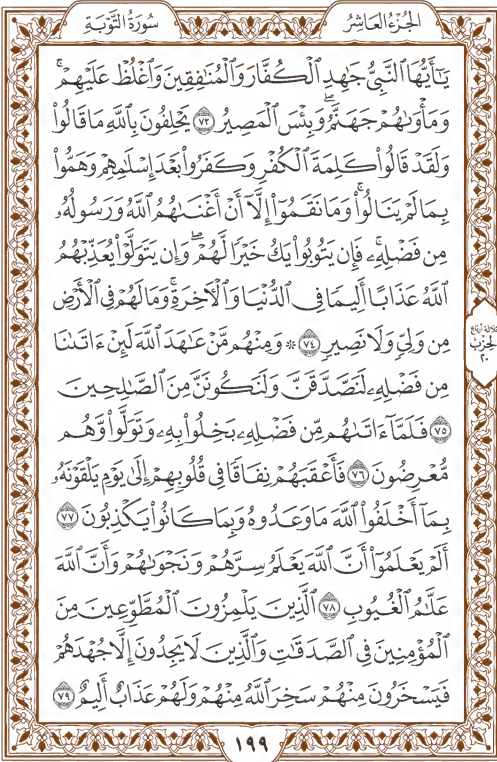 الجُزْءُ العَاشِرُ
سُورَةُ التَّوْبَةِ
يَٰٓأَيُّهَا ٱلنَّبِيُّ جَٰهِدِ ٱلْكُفَّارَ وَٱلْمُنَٰفِقِينَ وَٱغْلُظْ عَلَيْهِمْۚ
وَمَأْوَىٰهُمْ جَهَنَّمُۖ وَبِئْسَ ٱلْمَصِيرُ ٧٣ يَحْلِفُونَ بِٱللَّهِ مَا قَالُوا۟
وَلَقَدْ قَالُوا۟ كَلِمَةَ ٱلْكُفْرِ وَكَفَرُوا۟ بَعْدَ إِسْلَٰمِهِمْ وَهَمُّوا۟
بِمَا لَمْ يَنَالُوا۟ۚ وَمَا نَقَمُوٓا۟ إِلَّآ أَنْ أَغْنَىٰهُمُ ٱللَّهُ وَرَسُولُهُۥ
مِن فَضْلِهِۦۚ فَإِن يَتُوبُوا۟ يَكُ خَيْرًا لَّهُمْۖ وَإِن يَتَوَلَّوْا۟ يُعَذِّبْهُمُ
ٱللَّهُ عَذَابًا أَلِيمًا فِي ٱلدُّنْيَا وَٱلْءَاخِرَةِۚ وَمَا لَهُمْ فِي ٱلْأَرْضِ
مِن وَلِيٍّ وَلَا نَصِيرٍ ٧٤ ۞ وَمِنْهُم مَّنْ عَٰهَدَ ٱللَّهَ لَئِنْ ءَاتَىٰنَا
مِن فَضْلِهِۦ لَنَصَّدَّقَنَّ وَلَنَكُونَنَّ مِنَ ٱلصَّٰلِحِينَ
٧٥ فَلَمَّآ ءَاتَىٰهُم مِّن فَضْلِهِۦ بَخِلُوا۟ بِهِۦ وَتَوَلَّوا۟ وَّهُم
مُّعْرِضُونَ ٧٦ فَأَعْقَبَهُمْ نِفَاقًا فِي قُلُوبِهِمْ إِلَىٰ يَوْمِ يَلْقَوْنَهُۥ
بِمَآ أَخْلَفُوا۟ ٱللَّهَ مَا وَعَدُوهُ وَبِمَا كَانُوا۟ يَكْذِبُونَ ٧٧
أَلَمْ يَعْلَمُوٓا۟ أَنَّ ٱللَّهَ يَعْلَمُ سِرَّهُمْ وَنَجْوَىٰهُمْ وَأَنَّ ٱللَّهَ
عَلَّٰمُ ٱلْغُيُوبِ ٧٨ ٱلَّذِينَ يَلْمِزُونَ ٱلْمُطَّوِّعِينَ مِنَ
ٱلْمُؤْمِنِينَ فِي ٱلصَّدَقَٰتِ وَٱلَّذِينَ لَا يَجِدُونَ إِلَّا جُهْدَهُمْ
فَيَسْخَرُونَ مِنْهُمْ سَخِرَ ٱللَّهُ مِنْهُمْ وَلَهُمْ عَذَابٌ أَلِيمٌ ٧٩
ثلاثة أرباع
الحزب
٢٠
١٩٩